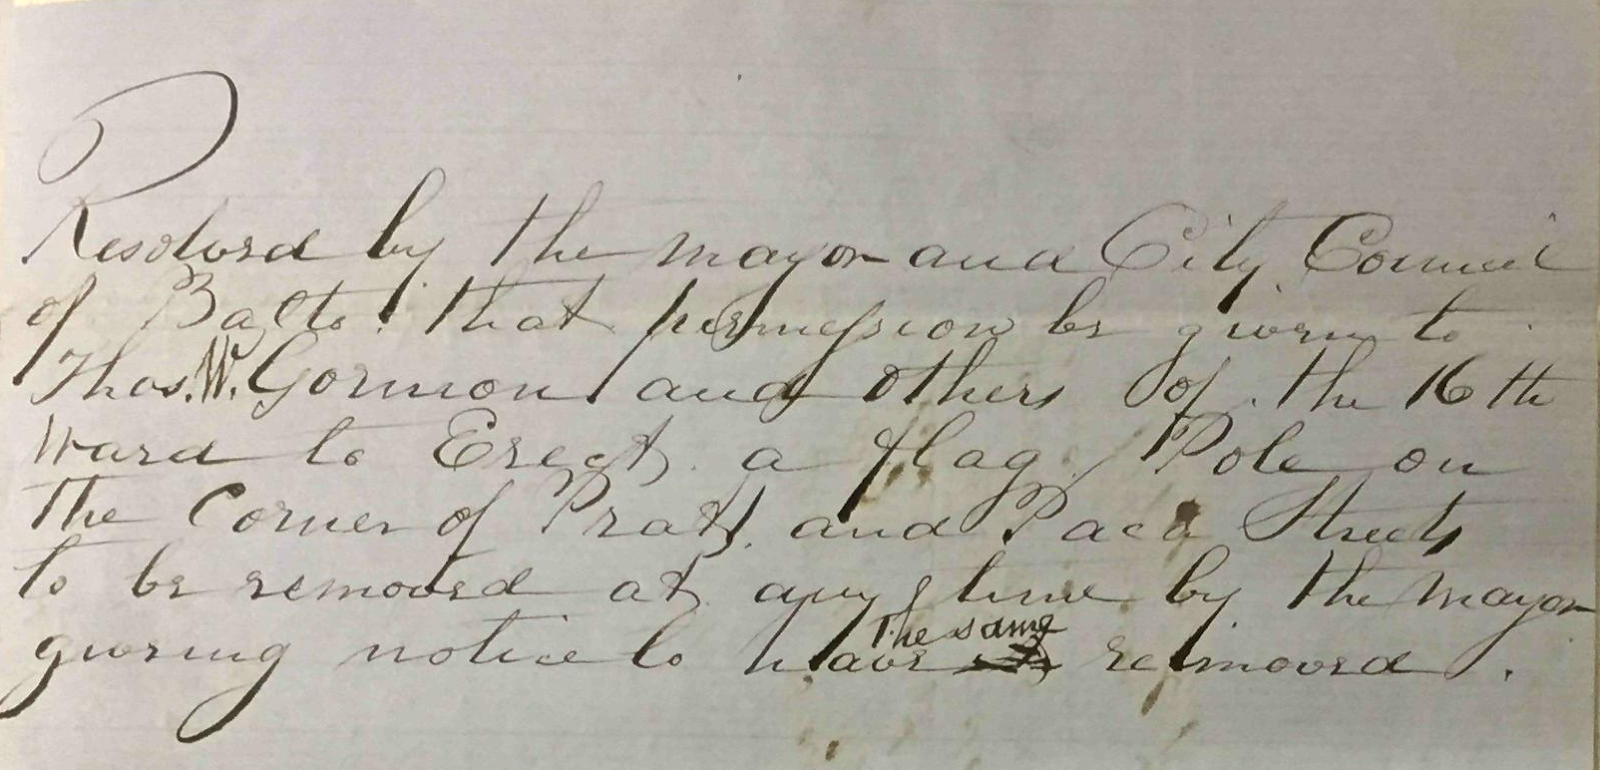 Resolved by the mayor and City Council
of Balto. that permission be given to
Thos. W. Gormon and others of the 16th
Ward to Erect a flag Pole on
the Corner of Pratt and Paca Streets
to be removed at any time by the mayor
giving notice to have the same removed.